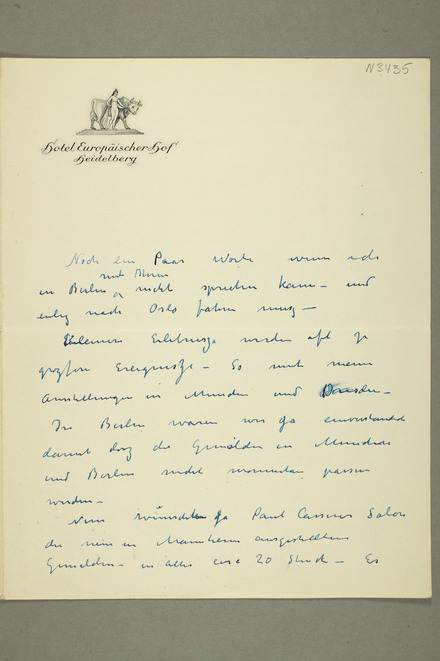 N3435
Hotel Europäischer Hof
Heidelberg
Noch ein Paar Worte wenn ich
mit Ihnen
in Berlin nicht sprechen kann – und
eilig nach Oslo fahren muss –
Kleinere Erlebnisse werden oft zu
grossen Ereignisse – So mit meine
Ausstellungen in München und Dresden –
In Berlin waren wir ja einverstanden
damit dass die Gemälden in München
und Berlin nicht momentan passen
werden –
Nun wünschte ja Paul Cassirer Salon
die in Mannheim ausgestellten
Gemälden – in alles circa 20 Stück – Es